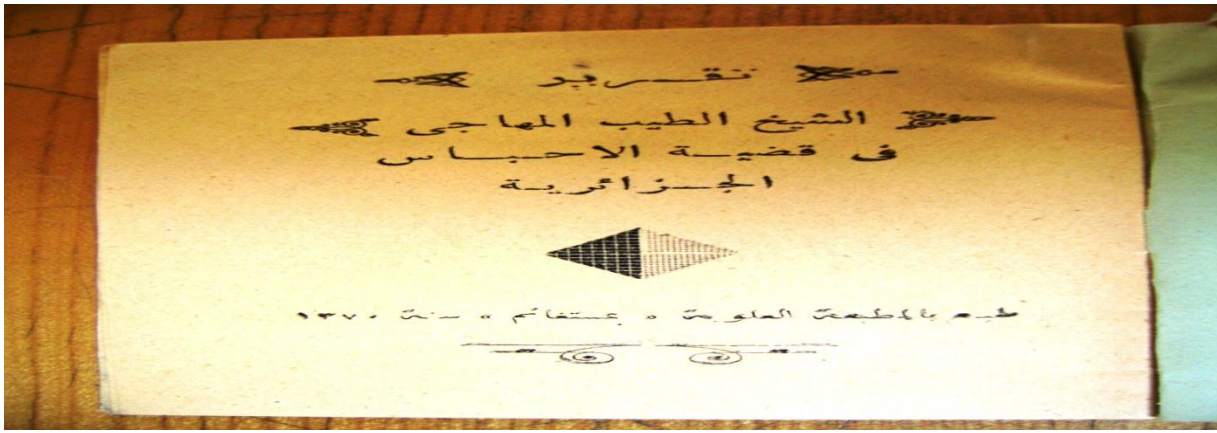 تقرير
الشيخ الطيب المهاجى
فى قضية الاحباس
الجزائرية
طبع بالمطبعة العلوية « بمستغانم » سنة ١٣٧٠